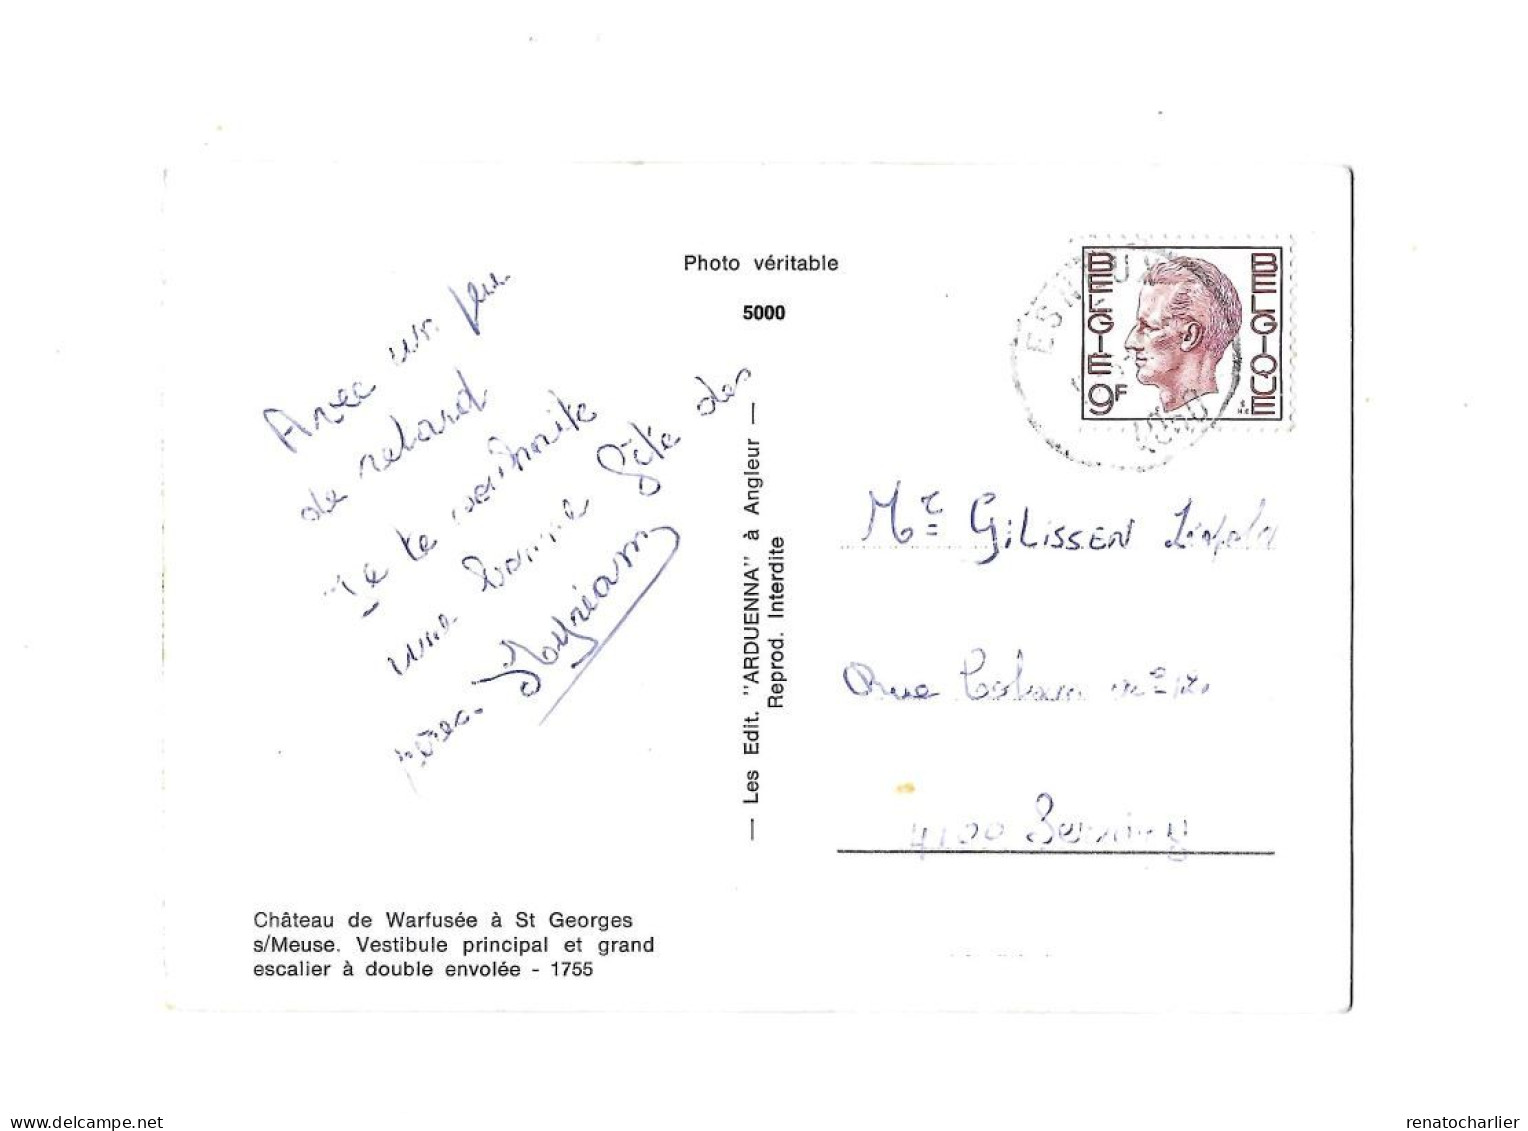 Photo véritable
5000
BELGIE
BELGIQUE
9F
ESNEUX
4050
Avec un peu
de retard
Je te souhaite
une bonne fête des
pères. Myriam
— Les Edit. "ARDUENNA" à Angleur —
Reprod. Interdite
Mr GILISSEN
Rue
4100 Seraing
Château de Warfusée à St Georges
s/Meuse. Vestibule principal et grand
escalier à double envolée - 1755
delcampe.net
renatocharlier